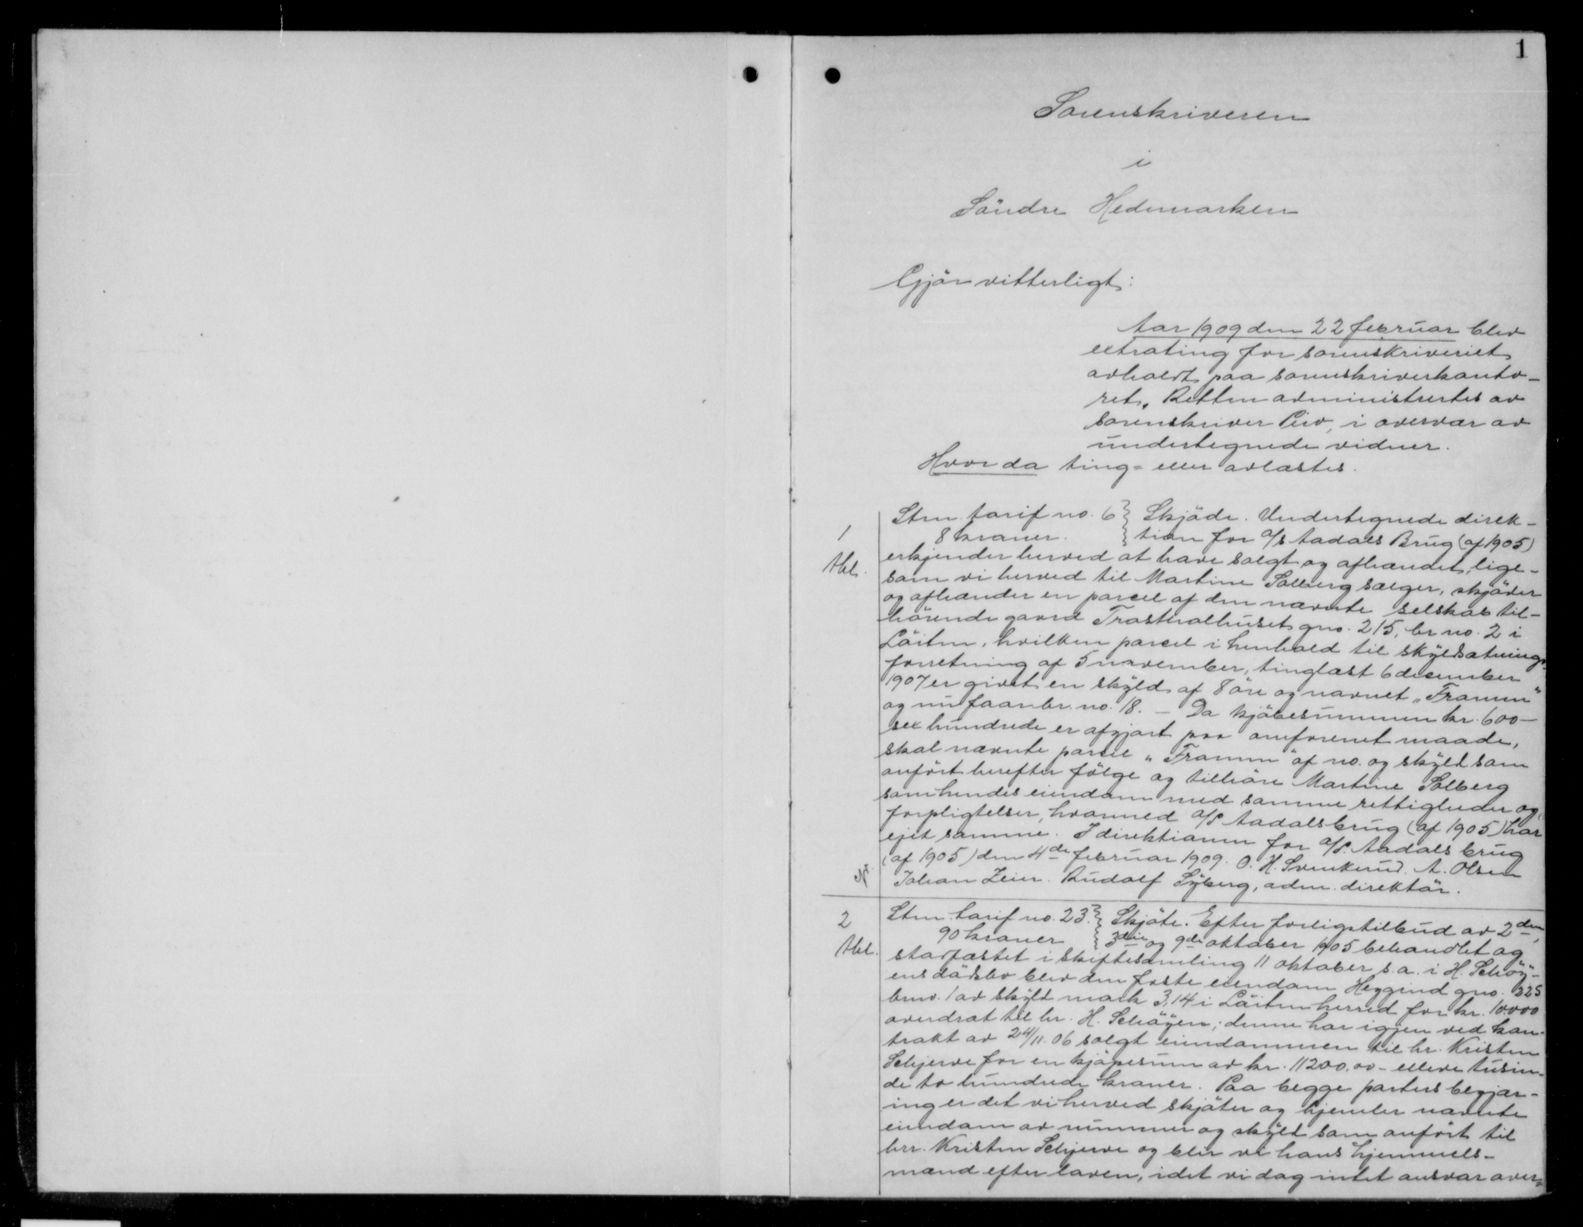 1
Sorenskriveren
i
Söndre Hedemarken
Gjör vitterligt:
Aar 1909 den 22 februar blev
extrating for sorenskriveriet
avholdt paa sorenskriverkonto-
ret. Retten administrertes av
sorenskriver Piro, i overvær av
undertegnede vidner.
Hvorda ting- eller avlæstes.
1 Stm. tarif no. 6 } Skjöde. Undertegnede direk-
8 kroner. } tion for a/s Aadals Brug (af 1905)
Abl. erkjender herved at have solgt og afhændet, lige-
som vi herved til Martine Solberg sælger, skjöder
og afhænder en parcel af den nævnte selskab til-
hörende gaard Trosterudhuset gno. 215, br. no. 2 i
Löiten, hvilken parcel i henhold til skyldsætnings-
forretning af 5 november, tinglæst 6 december
1907 er givet en skyld af 8 öre og navnet "Framm"
og nu faar br. no. 18. – Da kjöbesummen kr. 600 –
sex hundrede er afgjort paa omforenet maade,
skal nævnte parcel "Framm" af no. og skyld som
anfört herefter fölge og tilhöre Martine Solberg
som hendes eiendom med samme rettigheder og
forpligtelser, hvormed a/s Aadalsbrug (af 1905) har
ejet samme. I direktionen for a/s. Aadals brug
(af 1905) den 4de februar 1909. O. H. Svenkerud. A. Olsen
Johan Zeier. Rudolf Syberg, adm. direktör.
2 Stm tarif no. 23. } Skjöte. Efter forligstilbud av 2den,
90 kroner } 3die og 9de oktober 1905 behandlet og
Abl. stadfæstet i skiftesamling 11 oktober s.a. i H. Schöy-
ens dödsbo blev den faste eiendom Heggind gno. 225
brno. 1 av skyld mark 3,14 i Löiten herred for kr. 10000
overdrat til hr. H. Schöyen; denne har igjen ved kon-
trakt av 24/11.06 solgt eiendommen til hr. Kristen
Schjerve for en kjöpesum av kr. 11200,00 – elleve tusin-
de to hundrede kroner. Paa begge parters begjær-
ing er det vi herved skjöter og hjemler nævnte
eiendom av nummer og skyld som anfört til
hrr. Kristen Schjerve og blir vi hans hjemmels-
mænd efter loven, idet vi dog intet ansvar over-